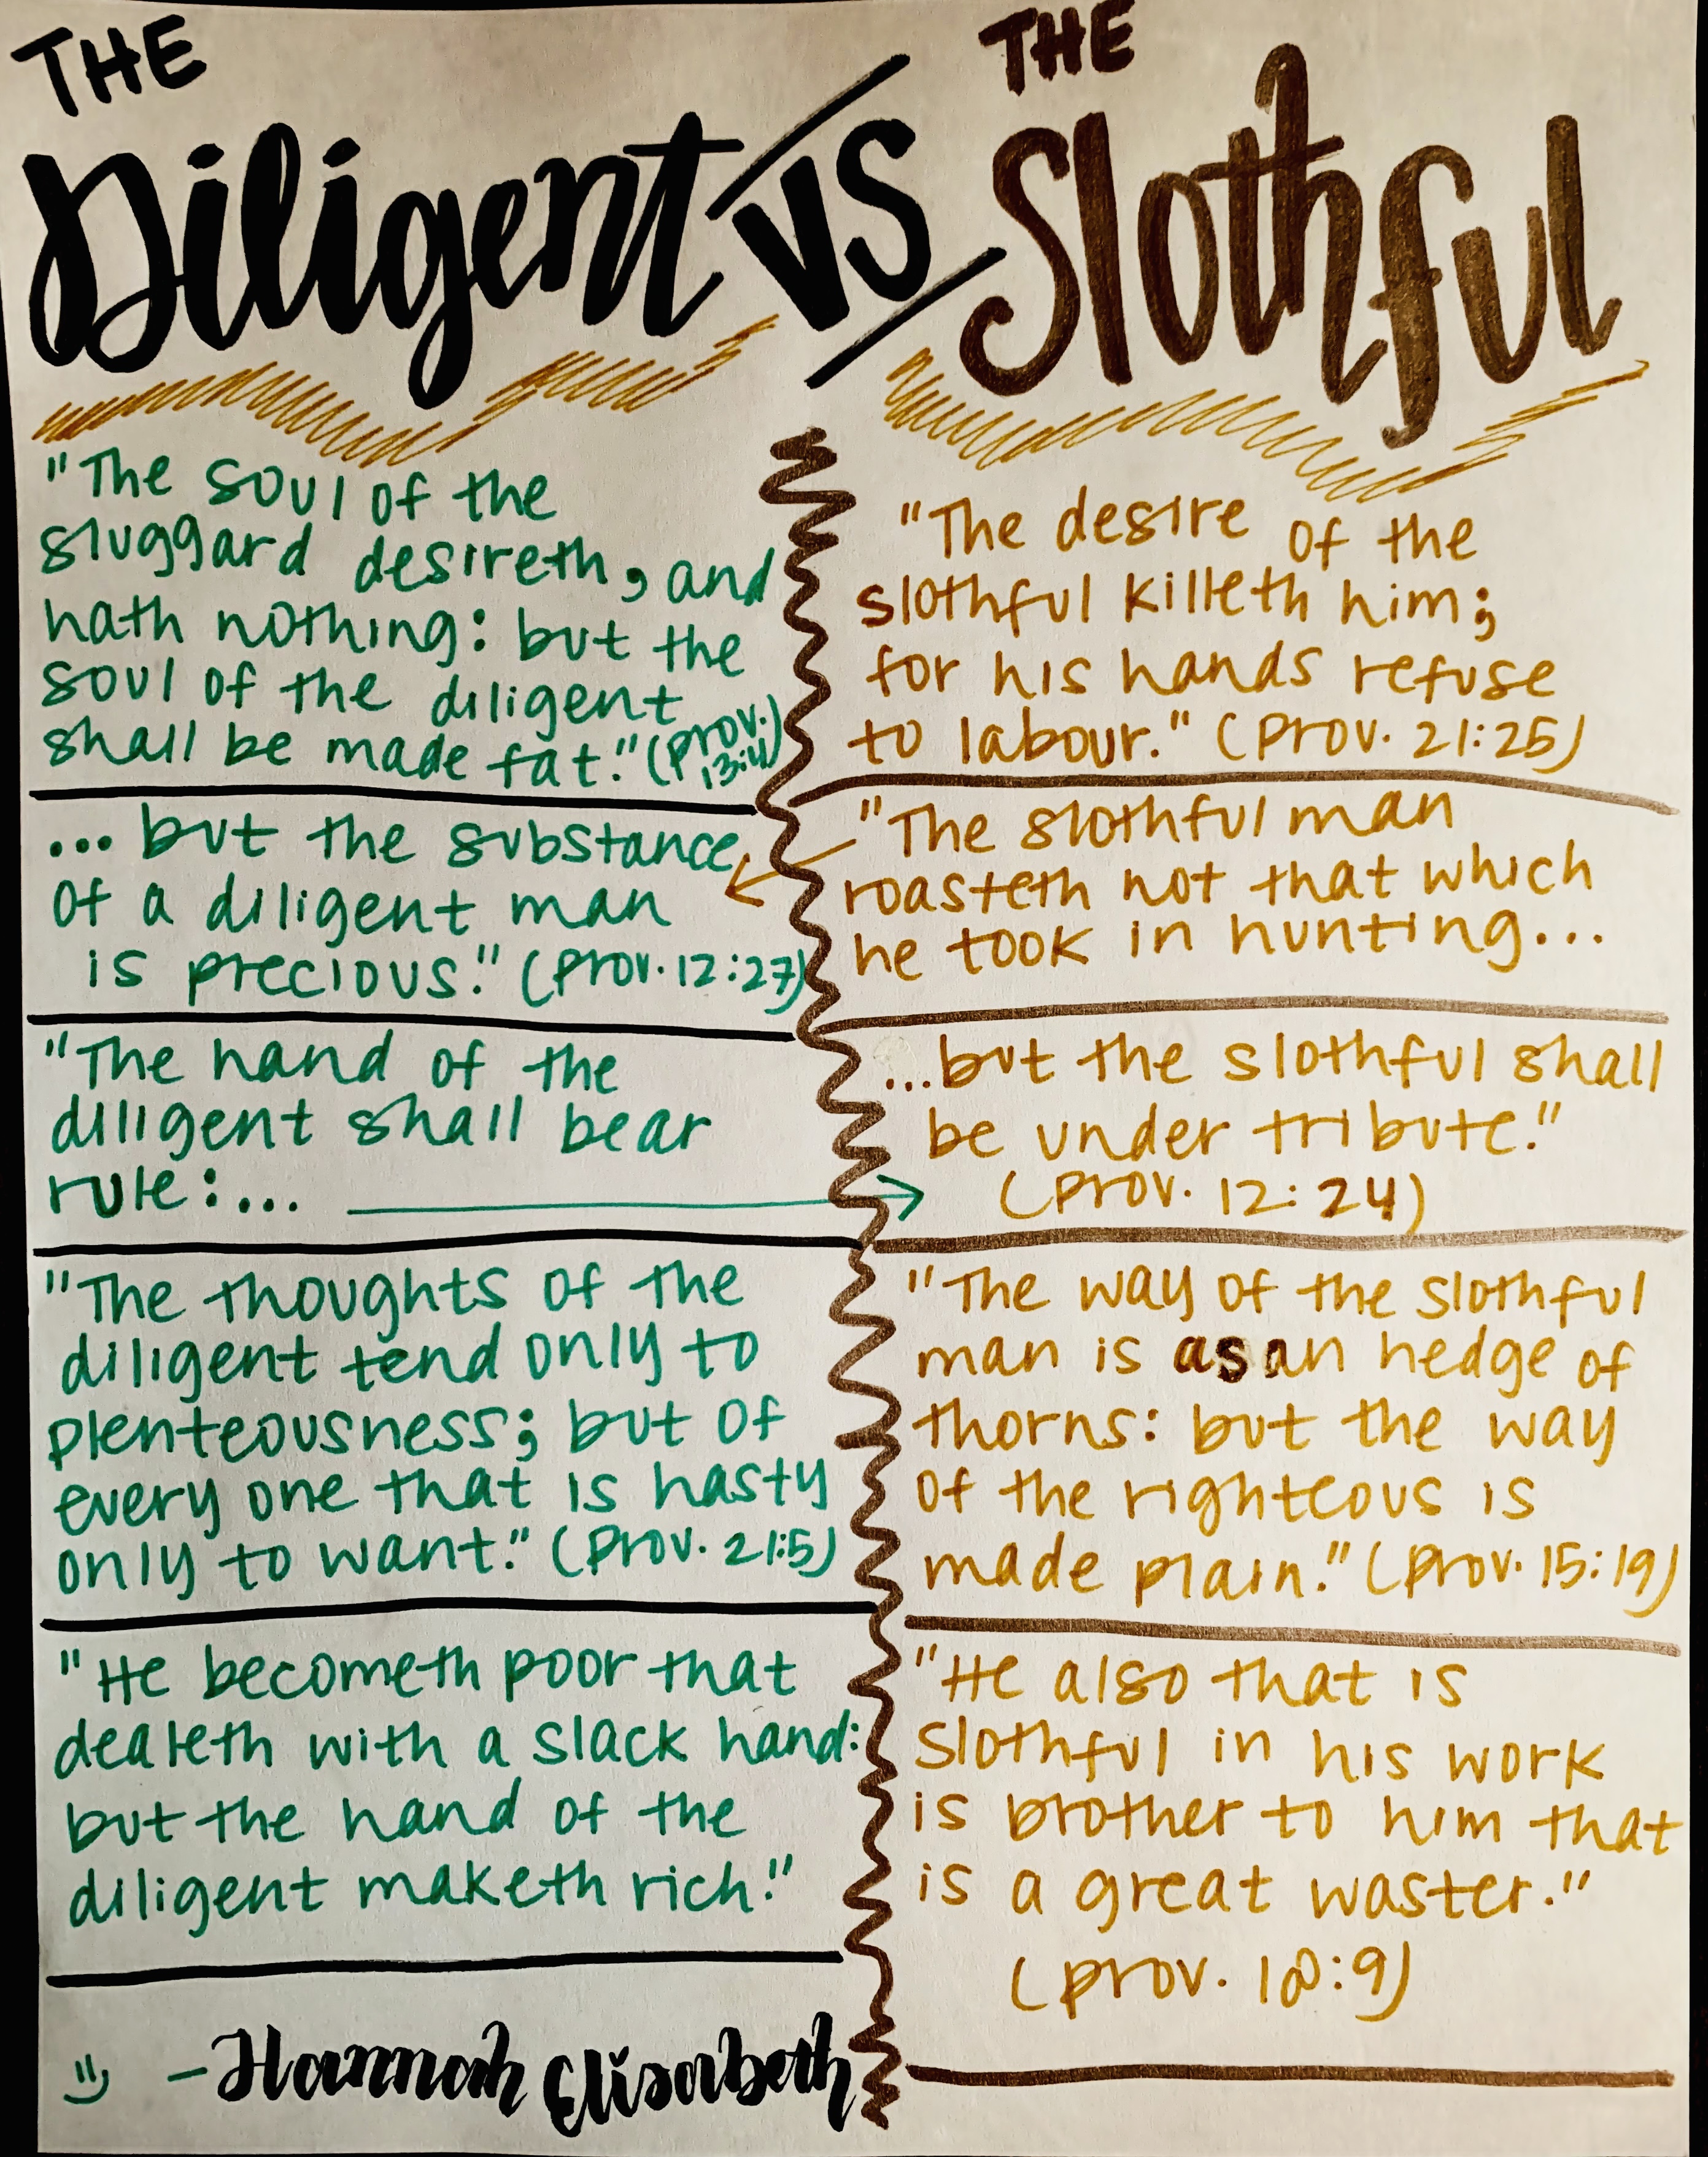 THE
Diligent
VS
THE
Slothful
"The soul of the
sluggard desireth, and
hath nothing: but the
soul of the diligent
shall be made fat." (Prov.
13:4)
... but the substance
of a diligent man
is precious." (Prov. 12:27)
"The hand of the
diligent shall bear
rule:...
"The thoughts of the
diligent tend only to
plenteousness; but of
every one that is hasty
only to want." (Prov. 21:5)
"He becometh poor that
dealeth with a slack hand:
but the hand of the
diligent maketh rich."
- Hannah Elisabeth
"The desire of the
slothful killeth him;
for his hands refuse
to labour." (Prov. 21:25)
"The slothful man
roasteth not that which
he took in hunting...
...but the slothful shall
be under tribute."
(Prov. 12:24)
"The way of the slothful
man is as an hedge of
thorns: but the way
of the righteous is
made plain." (Prov. 15:19)
"He also that is
slothful in his work
is brother to him that
is a great waster."
(Prov. 18:9)